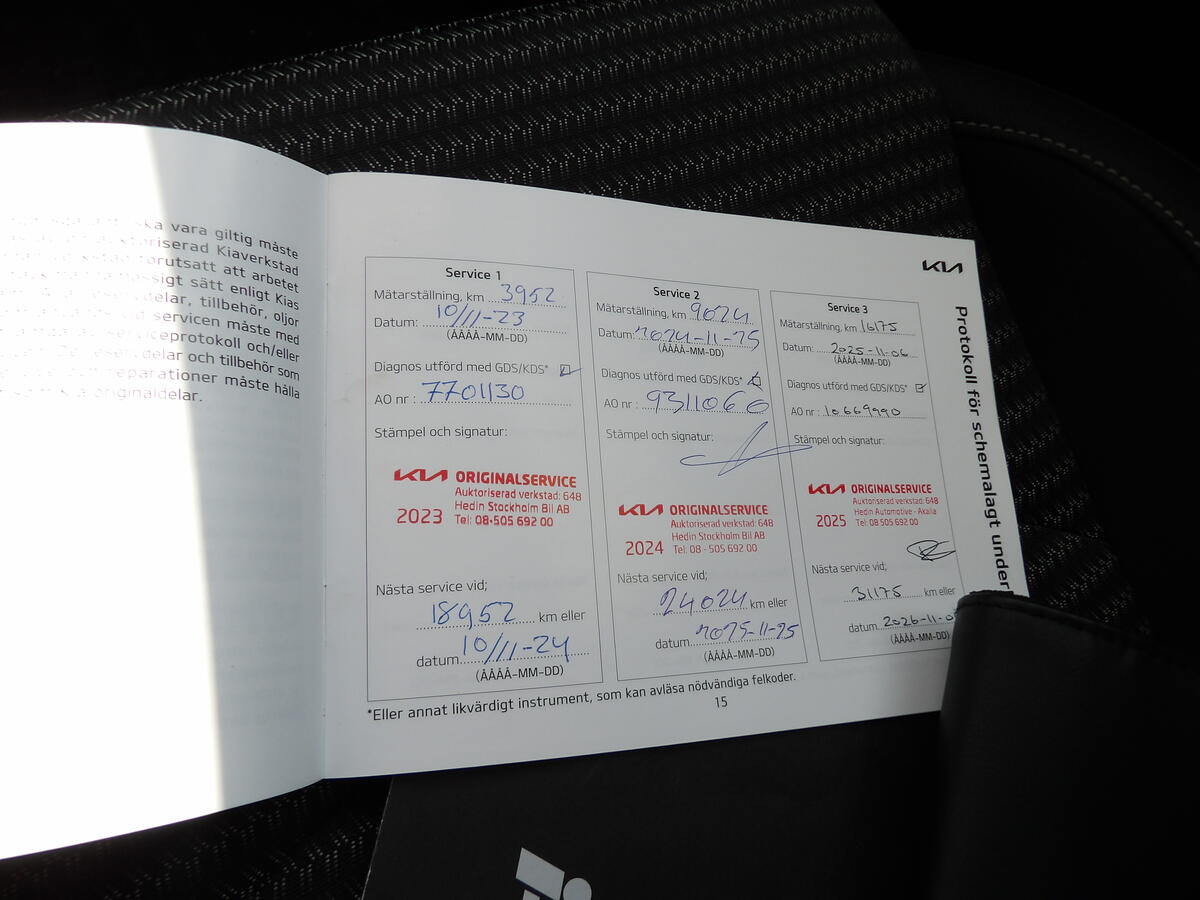 vara giltig måste
Kiaverkstad
att arbetet
sätt enligt Kias
tillbehör, oljor
servicen måste med
och/eller
och tillbehör som
reparationer måste hålla
originaldelar.
KIA
Protokoll för schemalagt under
Service 1
Mätarställning, km 3952
Datum: 10/11-23
(ÅÅÅÅ-MM-DD)
Diagnos utförd med GDS/KDS*
AO nr : 7701130
Stämpel och signatur:
KIA ORIGINALSERVICE
Auktoriserad verkstad: 648
Hedin Stockholm Bil AB
2023 Tel: 08-505 692 00
Nästa service vid;
18952 km eller
datum 10/11-24
(ÅÅÅÅ-MM-DD)
Service 2
Mätarställning, km 9024
Datum: 2024-11-25
(ÅÅÅÅ-MM-DD)
Diagnos utförd med GDS/KDS*
AO nr : 9311060
Stämpel och signatur:
KIA ORIGINALSERVICE
Auktoriserad verkstad: 648
Hedin Stockholm Bil AB
2024 Tel: 08 - 505 692 00
Nästa service vid;
24024 km eller
datum 2025-11-25
(ÅÅÅÅ-MM-DD)
Service 3
Mätarställning, km 16175
Datum: 2025-11-06
(ÅÅÅÅ-MM-DD)
Diagnos utförd med GDS/KDS*
AO nr : 10669990
Stämpel och signatur:
KIA ORIGINALSERVICE
Auktoriserad verkstad: 648
Hedin Automotive - Akalla
2025 Tel: 08 505 692 00
Nästa service vid;
31175 km eller
datum 2026-11-0
(ÅÅÅÅ-MM-DD)
*Eller annat likvärdigt instrument, som kan avläsa nödvändiga felkoder.
15